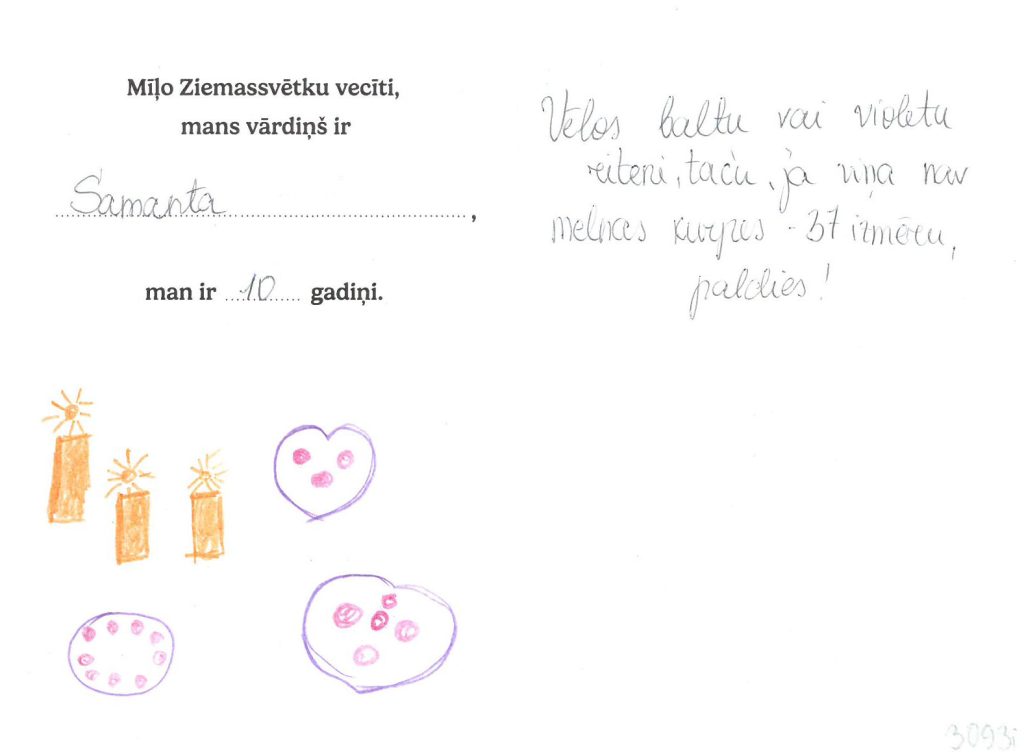 Mīļo Ziemassvētku vecīti,
mans vārdiņš ir
Samanta,
man ir 10 gadiņi.
Vēlos baltu vai violetu
riteni, taču, ja viņa nav
melnas kurpes - 37 izmēru,
paldies!
3093i